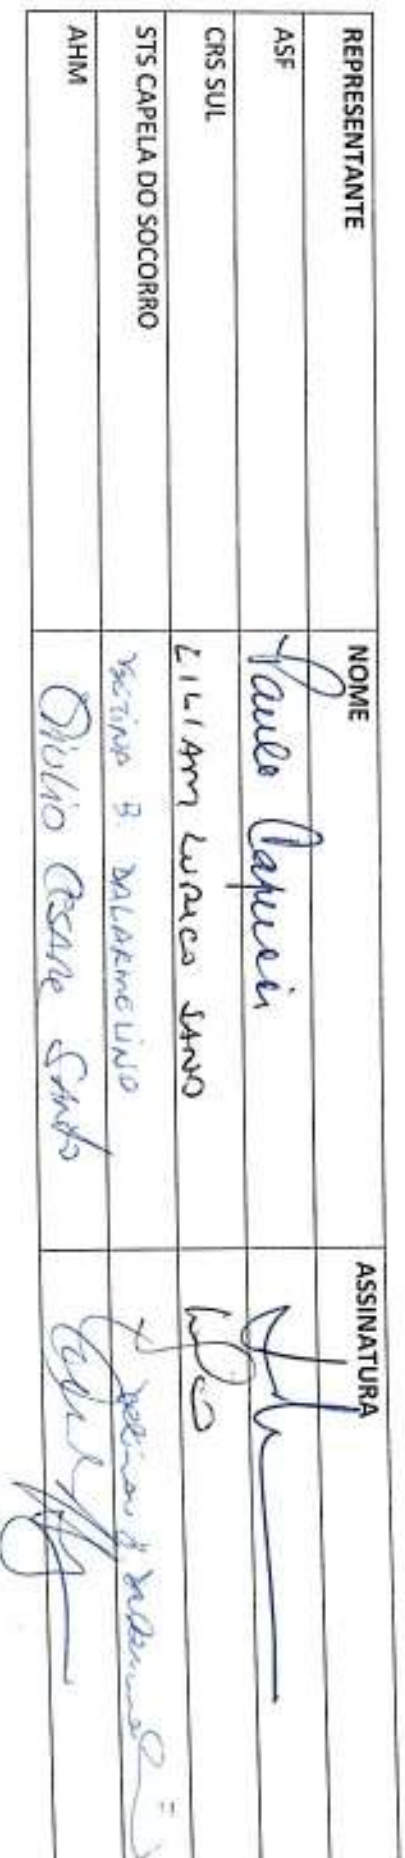 REPRESENTANTE NOME ASSINATURA
ASF Paulo Capucci
CRS SUL LILIAM LURICO SANO
STS CAPELA DO SOCORRO B. DALARMELINO
AHM Giulio Cesare Santo